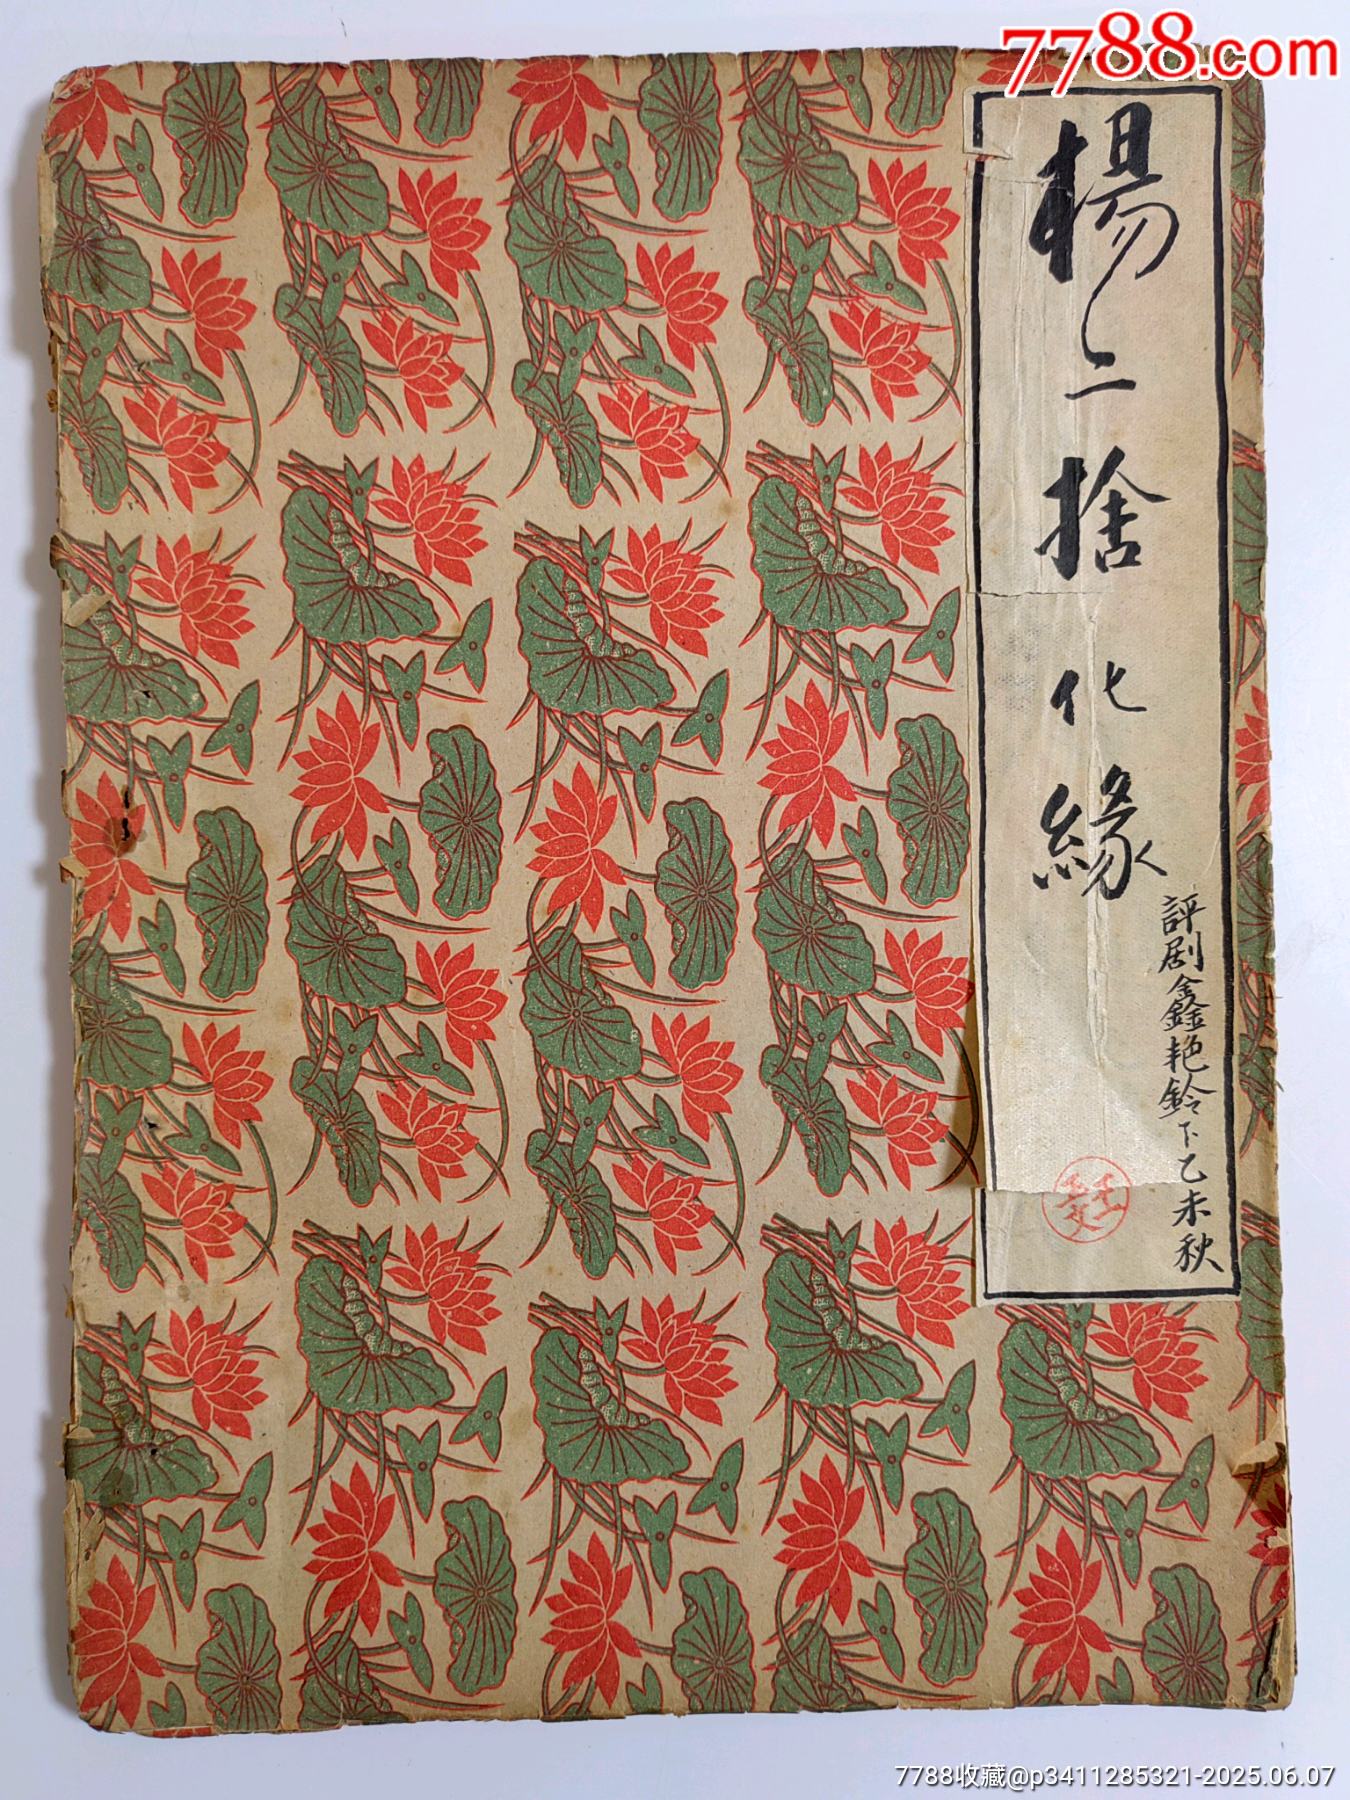 7788.com
楊二捨化緣
評剧鑫艳鈴下乙未秋
7788收藏@p3411285321-2025.06.07